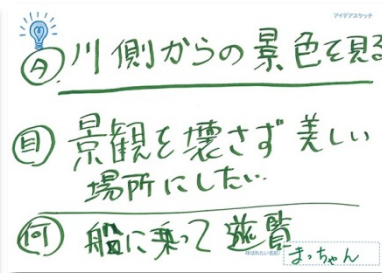 アイデアスケッチ
タ 川側からの景色を見る
目 景観を壊さず美しい
場所にしたい
何 船に乗って遊覧
呼ばれたい名前
まっちゃん